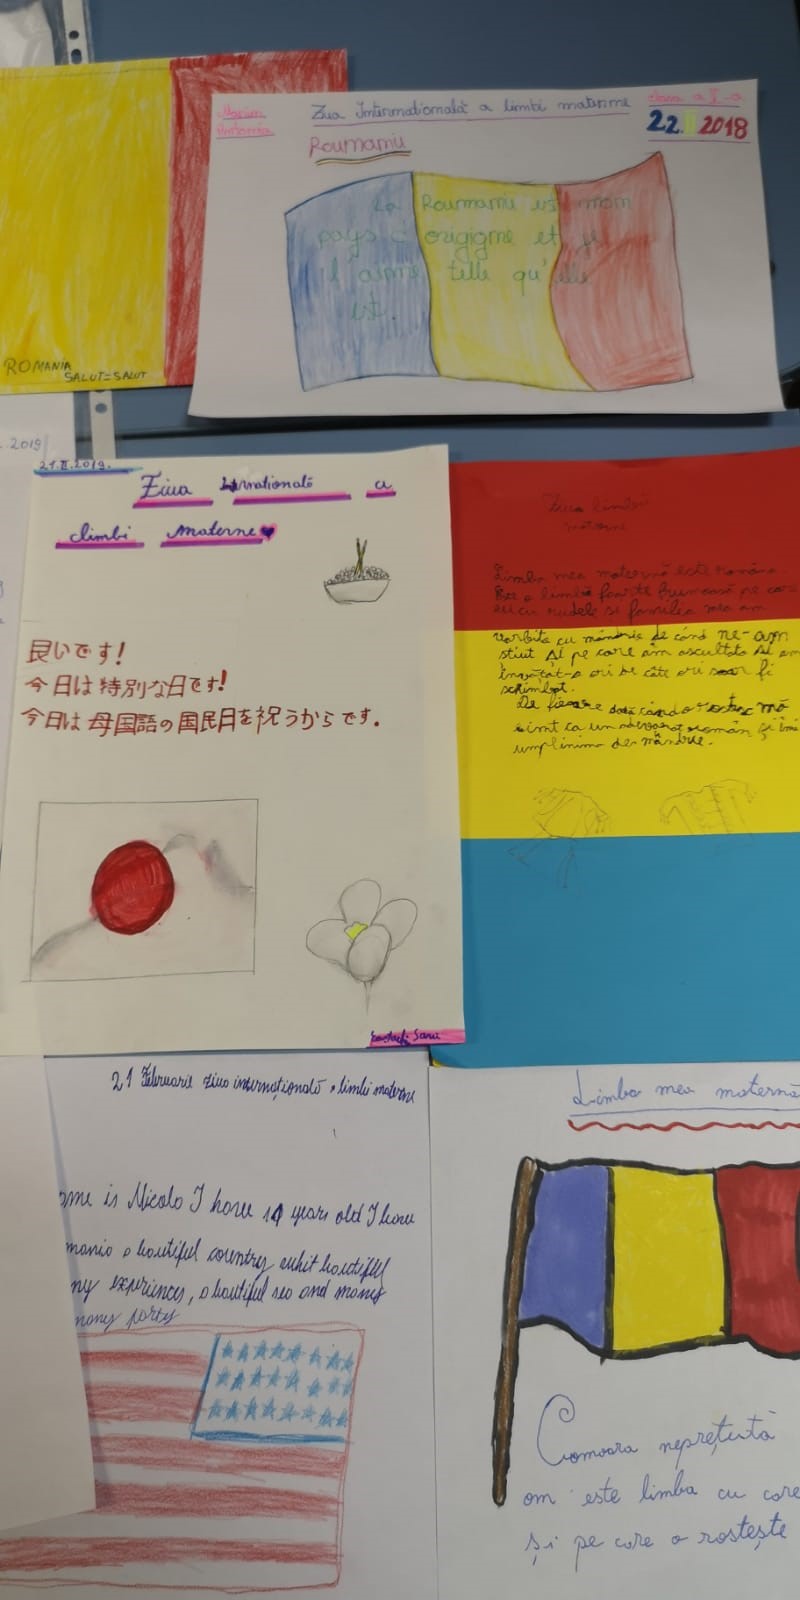 ROMANIA
SALUT=SALUT
Ziua Internațională a limbi materne
22.II 2018
Roumanii
La Roumanii est mon
pays d'origigme et je
il aime telle qu'elle
est.
21.II.2019.
Ziua Internatională a
limbi materne
良いです!
今日は特別な日です!
今日は母国語の国民日を祝うからです。
Sara
Ziua limbii
materne
Limba mea maternă este româna
Este o limbă foarte frumoasă pe care
eu cu rudele si familia mea am
vorbita cu mândrie de când ne-am
stiut și pe care am ascultato și am
învățat-o ori de câte ori s-ar fi
schimbat.
De fiecare dată când o rostesc mă
simt ca un adevarat român și îmi
umpl inima de mândrie.
21 Februarie ziua internațională a limbii materne
ame is Nicolo I have 14 years old I leav
mania a beautiful country whit beautifull
ny experiences, a beautiful sea and many
many party
Limba mea maternă
Comoara neprețuită
om este limba cu care
și pe care o rostește